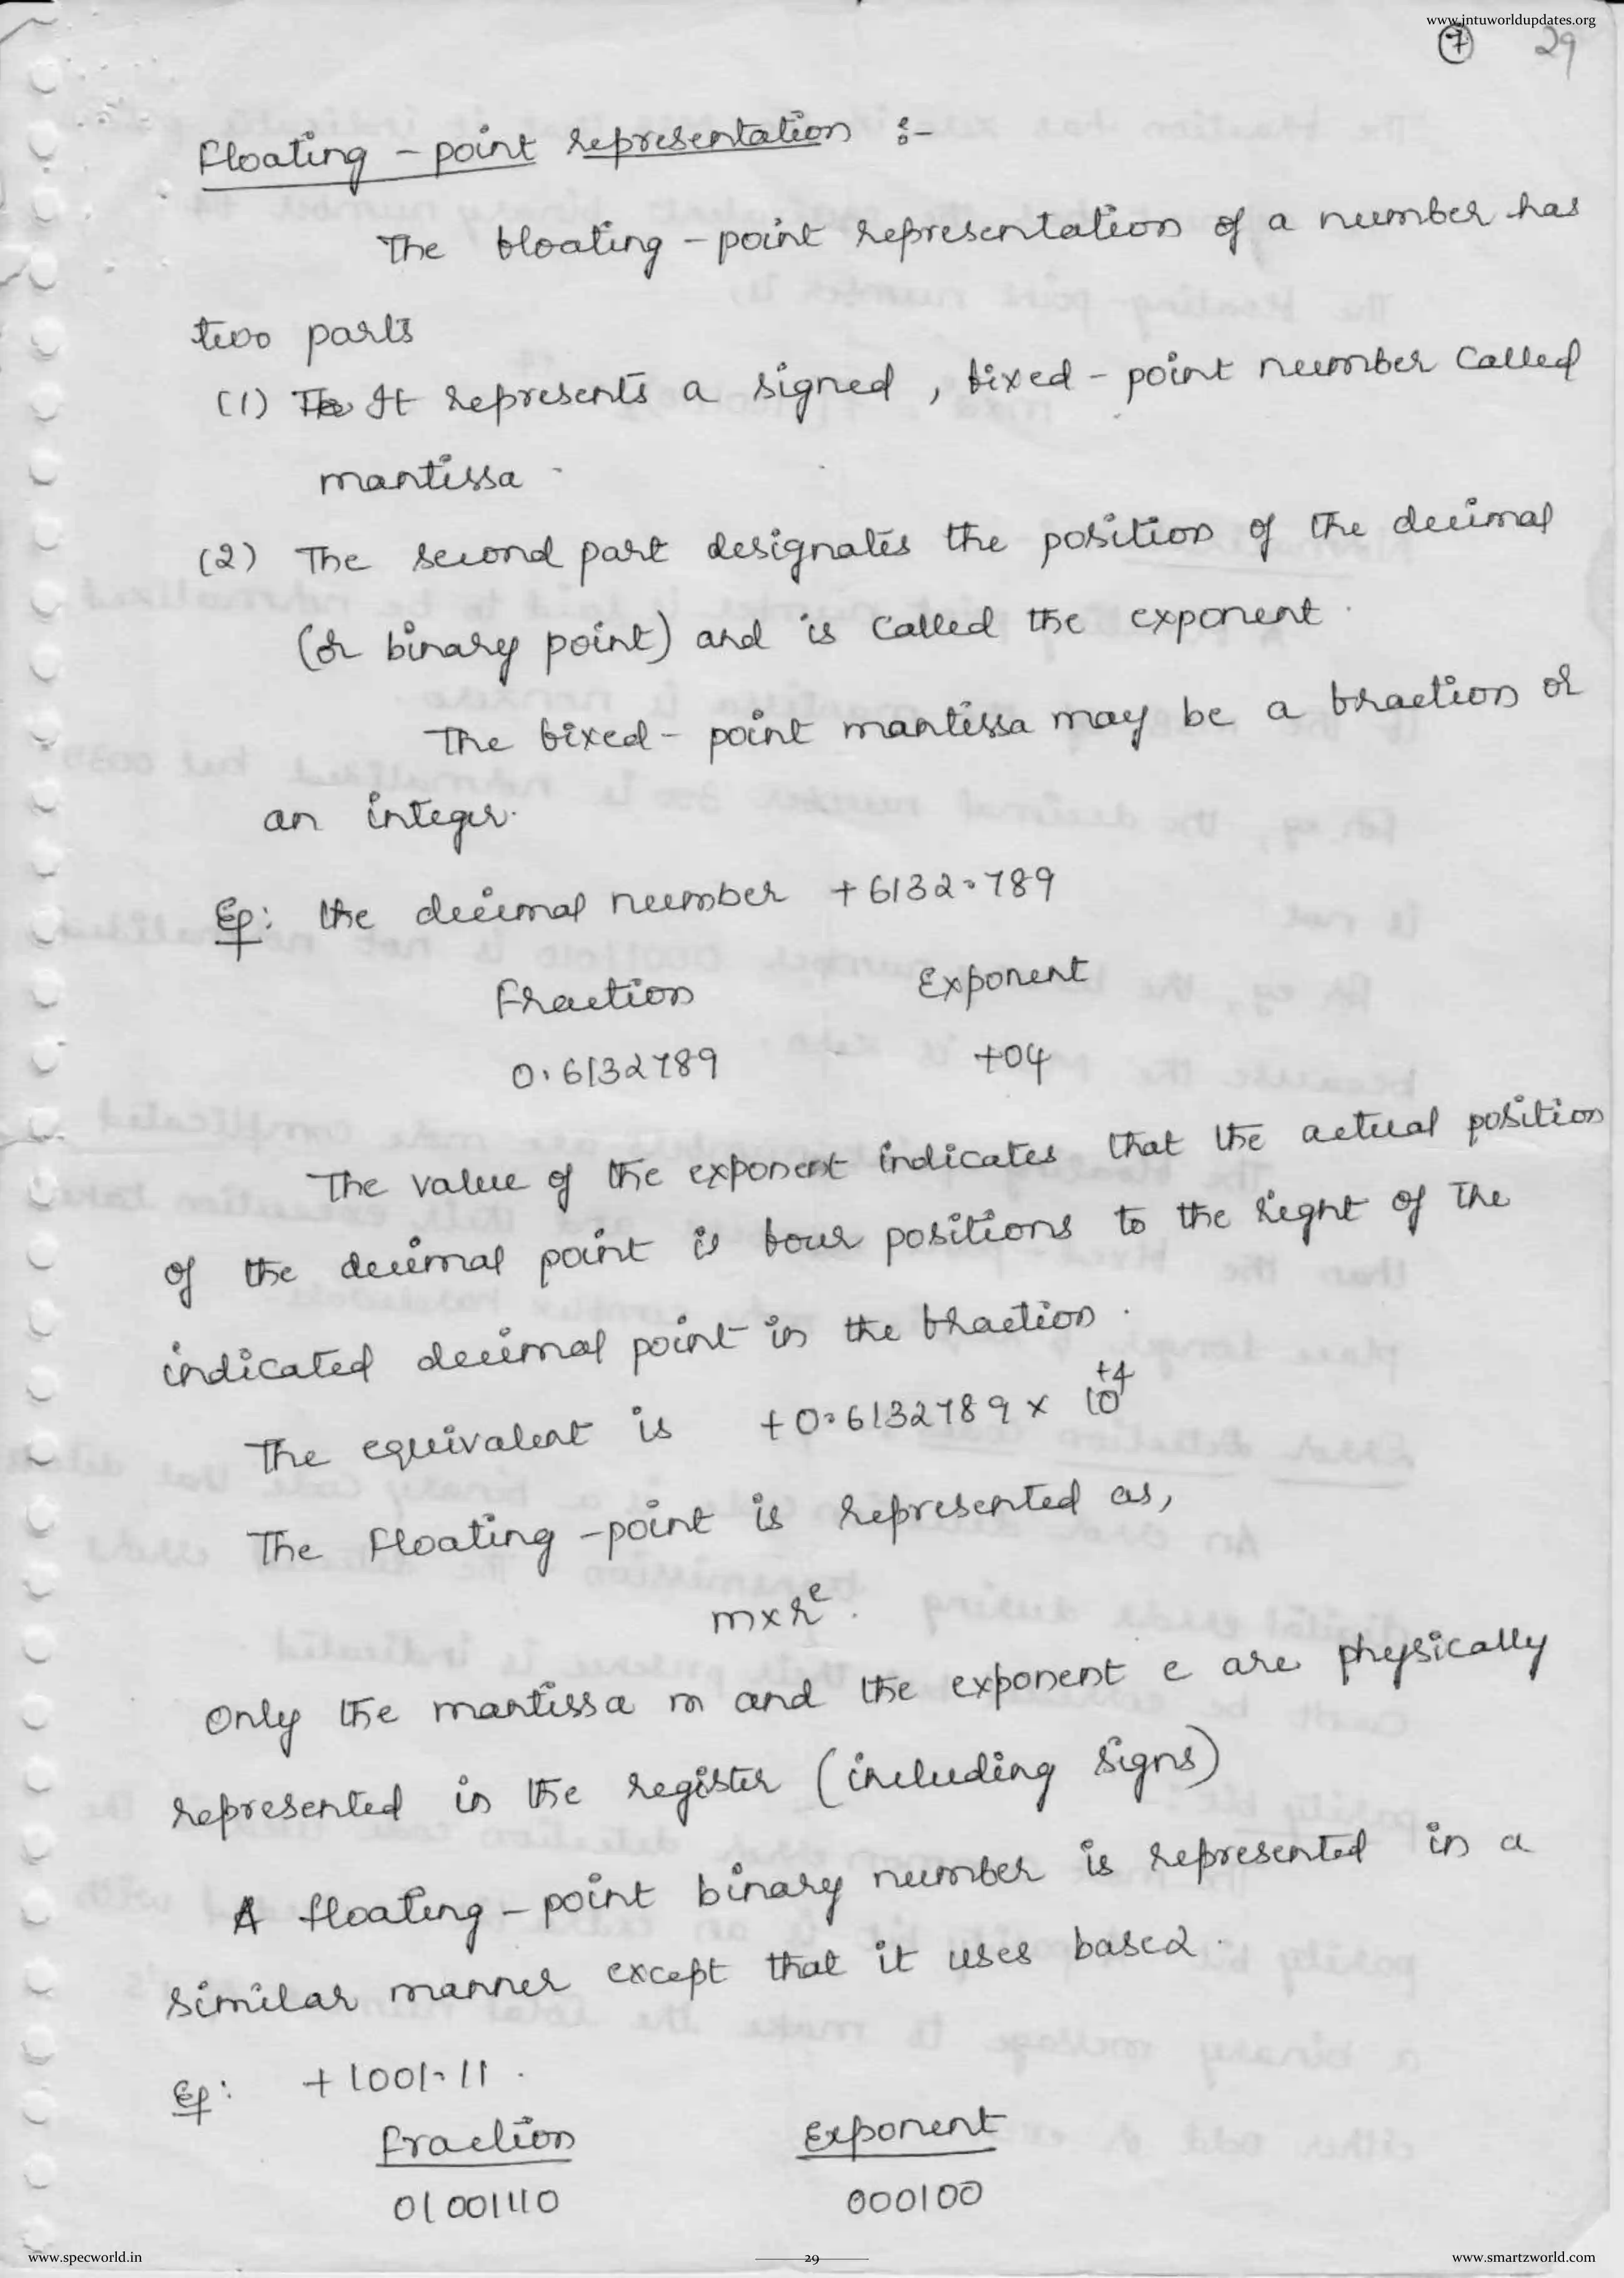 www.jntuworldupdates.org
7 29
Floating - point representation :-
The floating - point representation of a number has
two parts
(1) The It represents a signed, fixed - point number called
mantissa.
(2) The second part designates the position of the decimal
(or binary point) and is called the exponent.
The fixed - point mantissa may be a fraction or
an integer.
Eg: the decimal number +6132.789
Fraction Exponent
0.6132789 +04
The value of the exponent indicates that the actual position
of the decimal point is four positions to the right of the
indicated decimal point in the fraction.
The equivalent is +0.6132789 x 10^+4
The Floating - point is represented as,
m x r^e.
Only the mantissa m and the exponent e are physically
represented in the register (including signs)
A floating - point binary number is represented in a
similar manner except that it uses base2.
Eg: +1001.11.
Fraction Exponent
01001110 000100
www.specworld.in 29 www.smartzworld.com